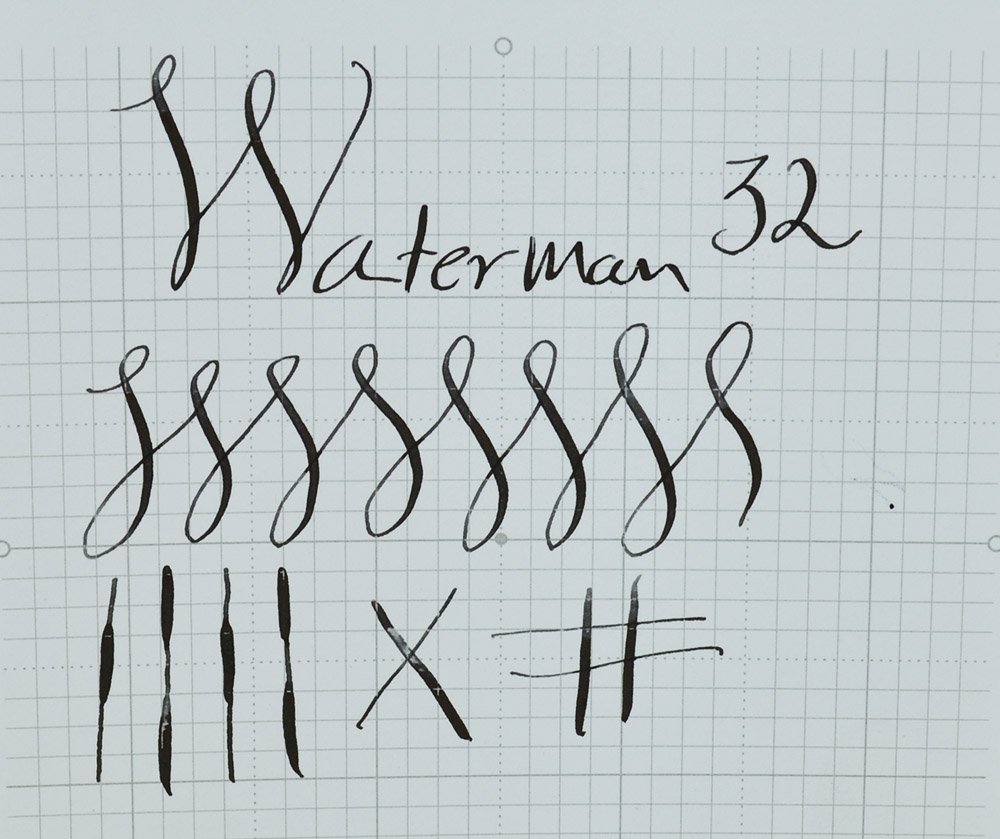 Waterman 32
X #